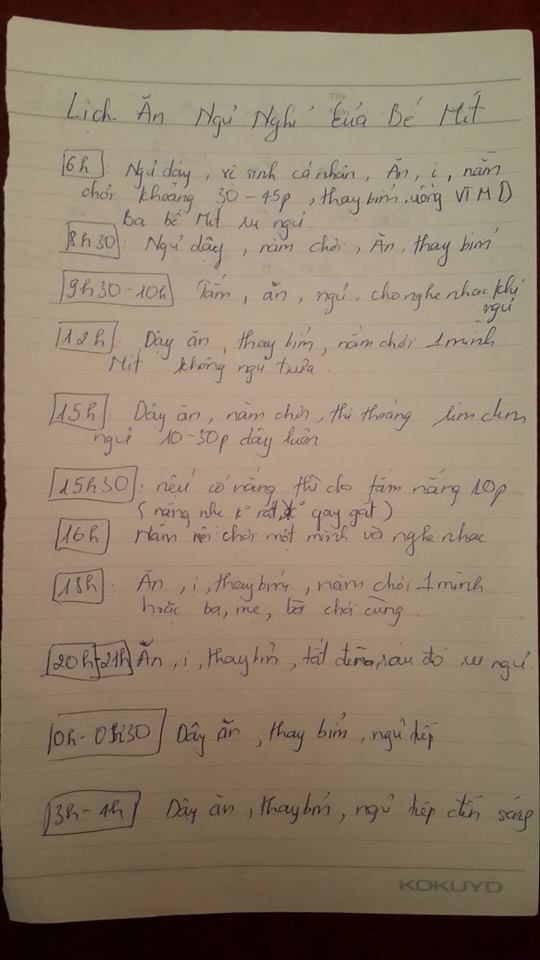 Lịch Ăn Ngủ Nghỉ Của Bé Mít
6h: Ngủ dậy, vệ sinh cá nhân, Ăn, ị, nằm
chơi khoảng 30-45p, thay bỉm, uống VTM D
Ba bế Mít ru ngủ.
8h30: Ngủ dậy, nằm chơi, Ăn, thay bỉm
9h30-10h Tắm, ăn, ngủ. cho nghe nhạc khi
ngủ
12h: Dậy ăn, thay bỉm, nằm chơi 1 mình
Mít không ngủ trưa.
15h: Dậy ăn, nằm chơi, thi thoảng lim dim
ngủ 10-30p dậy luôn
15h30: nếu có nắng thì cho tắm nắng 10p
(nắng nhẹ k° rát, k° gay gắt)
16h Nằm nôi chơi một mình và nghe nhạc
18h: Ăn, ị, thay bỉm, nằm chơi 1 mình
hoặc ba, mẹ, bà chơi cùng.
20h-21h Ăn, ị, thay bỉm, tắt đèn, sau đó ru ngủ.
0h-0h30 Dậy ăn, thay bỉm, ngủ tiếp
3h-4h Dậy ăn, thay bỉm, ngủ tiếp đến sáng
KOKUYO